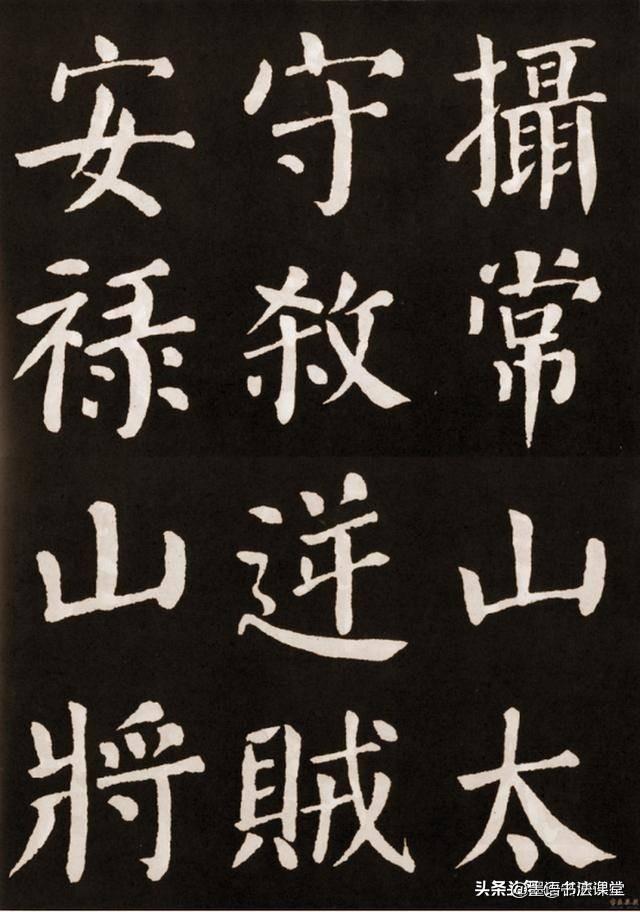 攝常山太
守殺逆賊
安禄山將
头条 @墨语书法课堂